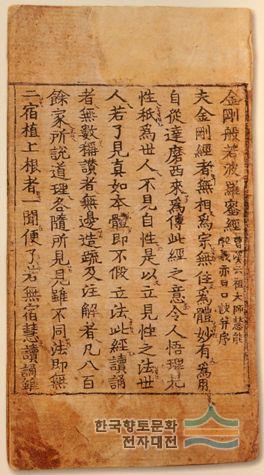 金剛般若波羅蜜經 曹溪六祖大師慧能
解義亦曰口訣并序
夫金剛經者無相爲宗無住爲體妙有爲用
自從達磨西來爲傳此經之意令人悟理見
性秖爲世人不見自性是以立見性之法世
人若了見真如本體即不假立法此經讀誦
者無數稱讃者無邊造疏及注解者凡八百
餘家所說道理各隨所見見雖不同法即無
二宿植上根者一聞便了若無宿慧讀誦雖
한국향토문화
전자대전